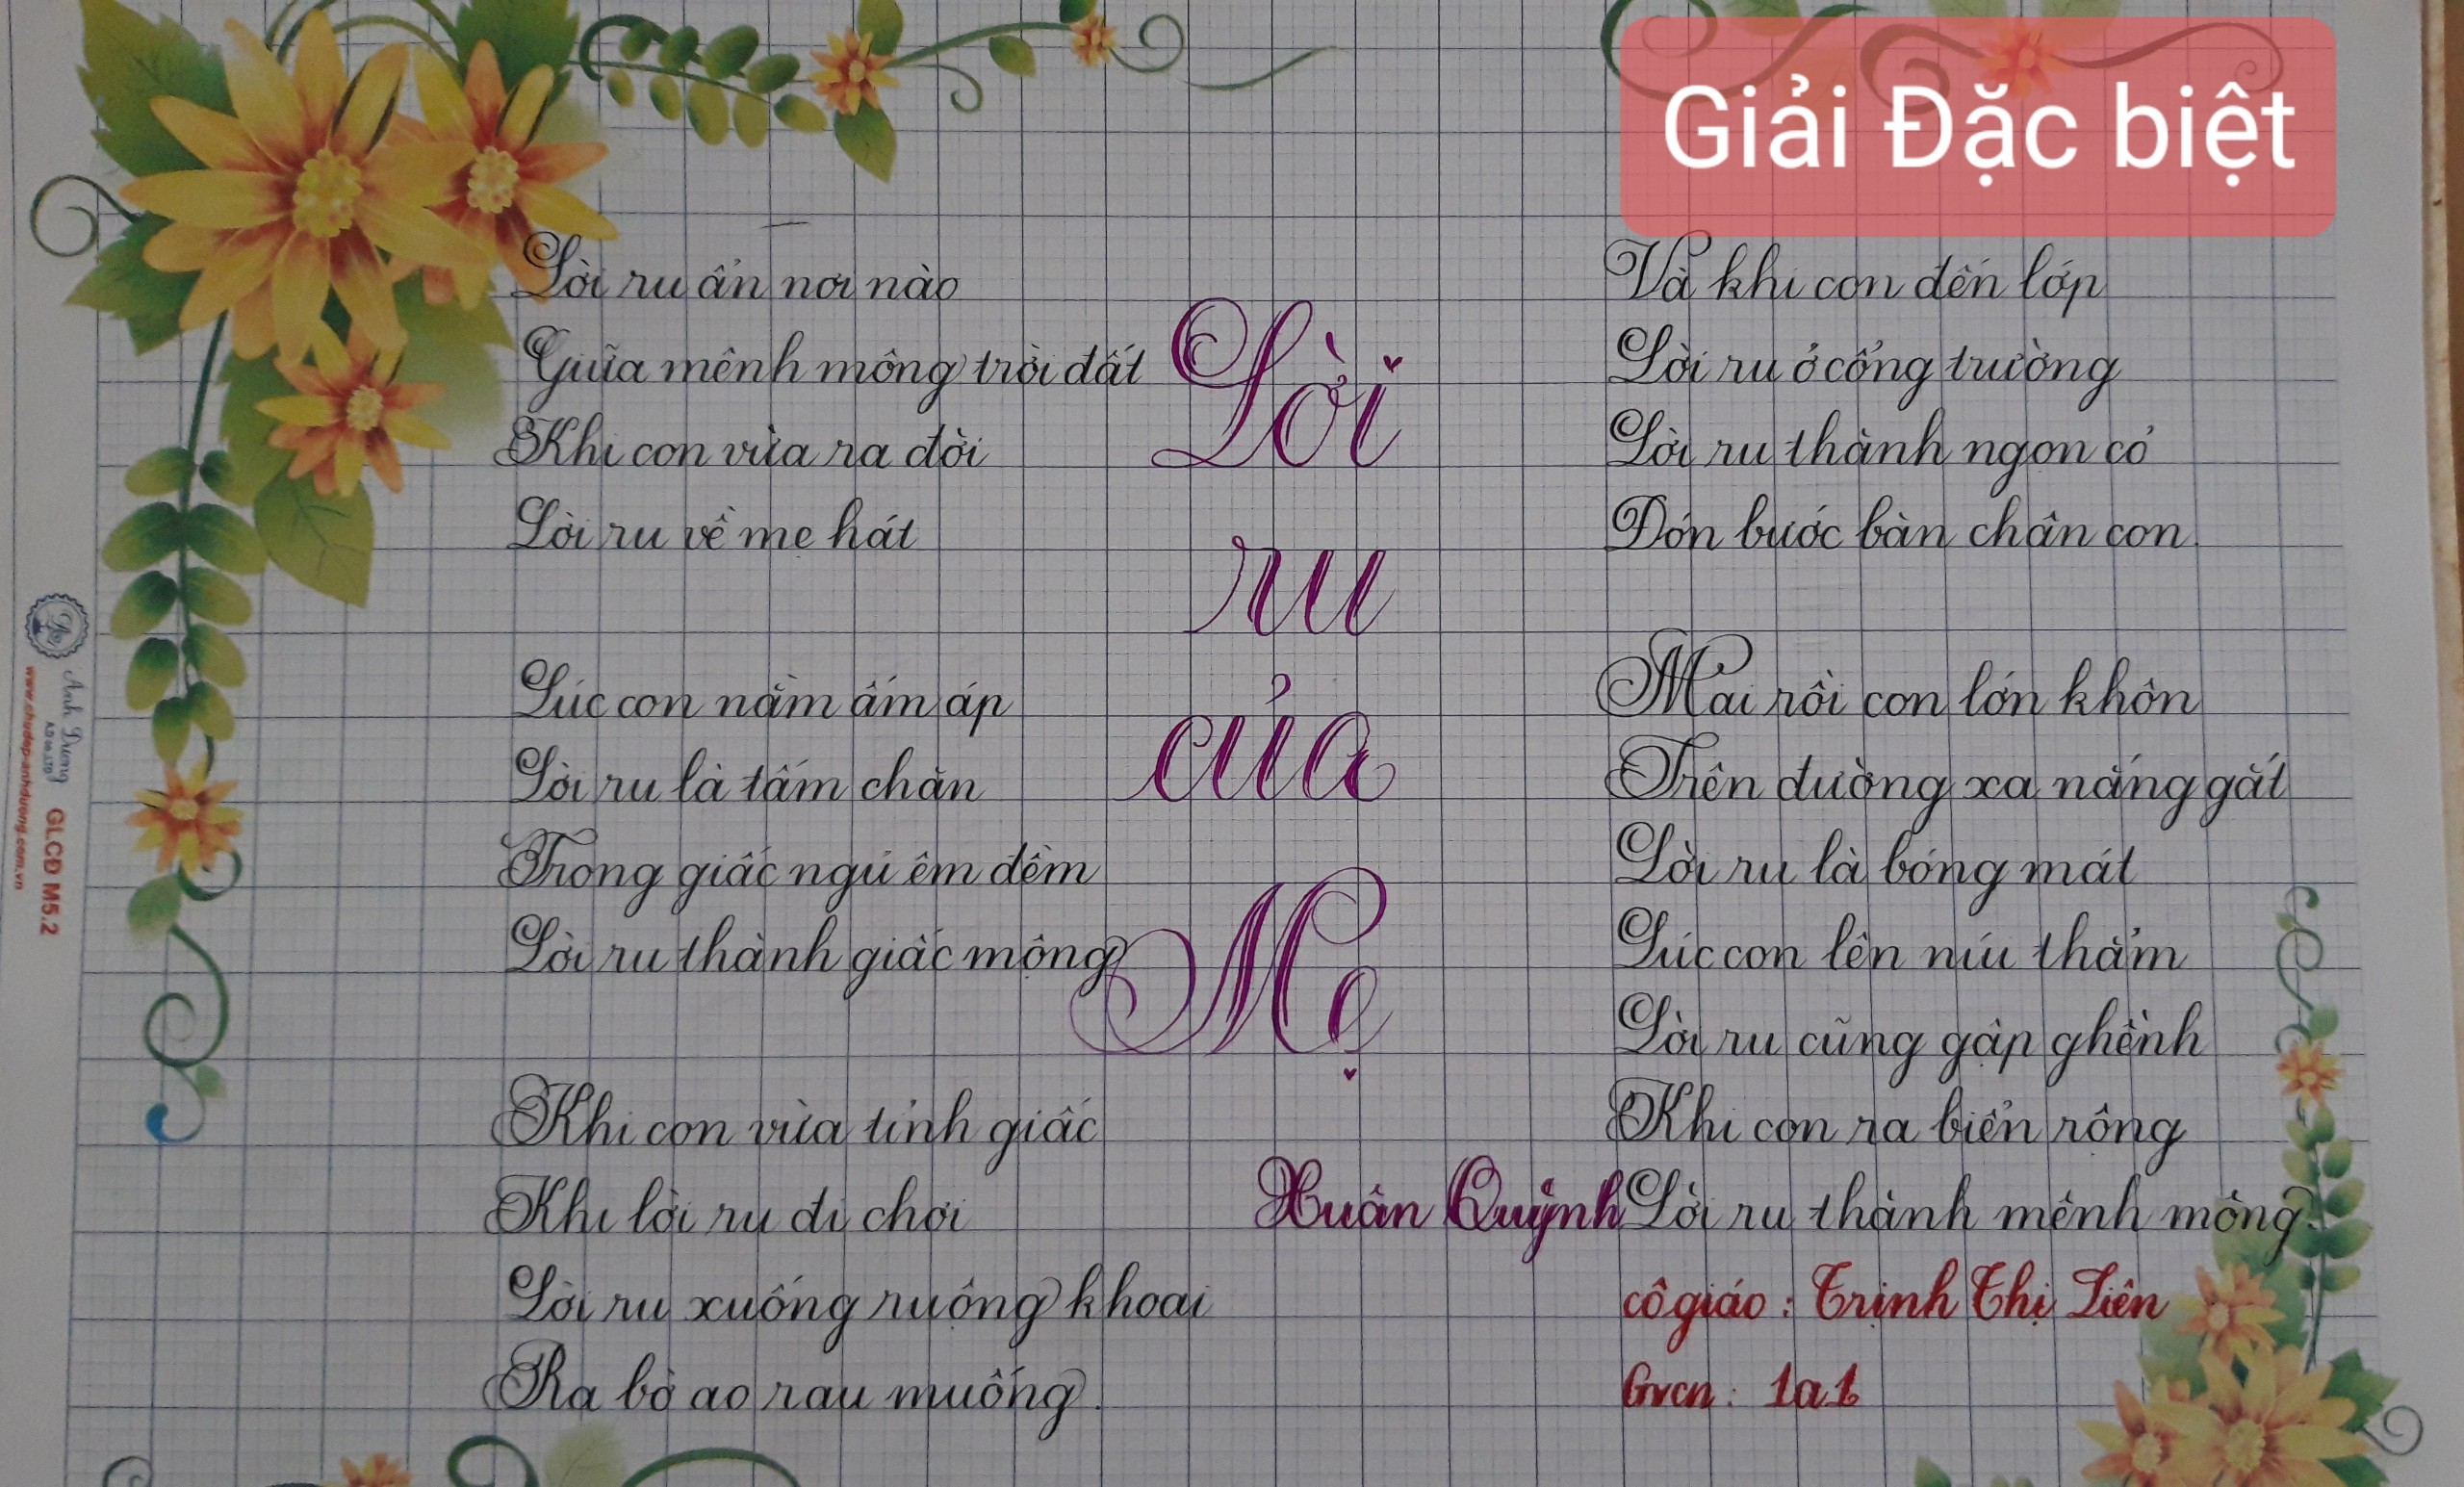 Giải Đặc biệt
Lời ru ẩn nơi nào
Giữa mênh mông trời đất
Khi con vừa ra đời
Lời ru về mẹ hát
Lúc con nằm ấm áp
Lời ru là tấm chăn
Trong giấc ngủ êm đềm
Lời ru thành giấc mộng
Khi con vừa tỉnh giấc
Khi lời ru đi chơi
Lời ru xuống ruộng khoai
Ra bờ ao rau muống.
Lời
ru
của
Mẹ
Xuân Quỳnh
Và khi con đến lớp
Lời ru ở cổng trường
Lời ru thành ngọn cỏ
Đón bước bàn chân con.
Mai rồi con lớn khôn
Trên đường xa nắng gắt
Lời ru là bóng mát
Lúc con lên núi thẳm
Lời ru cũng gập ghềnh
Khi con ra biển rộng
Lời ru thành mênh mông.
cô giáo : Trịnh Thị Liên
Gvcn : 1a1
Ánh Dương
A.D co.,LTD
www.chudep-anhduong.com.vn
GLCĐ M5.2